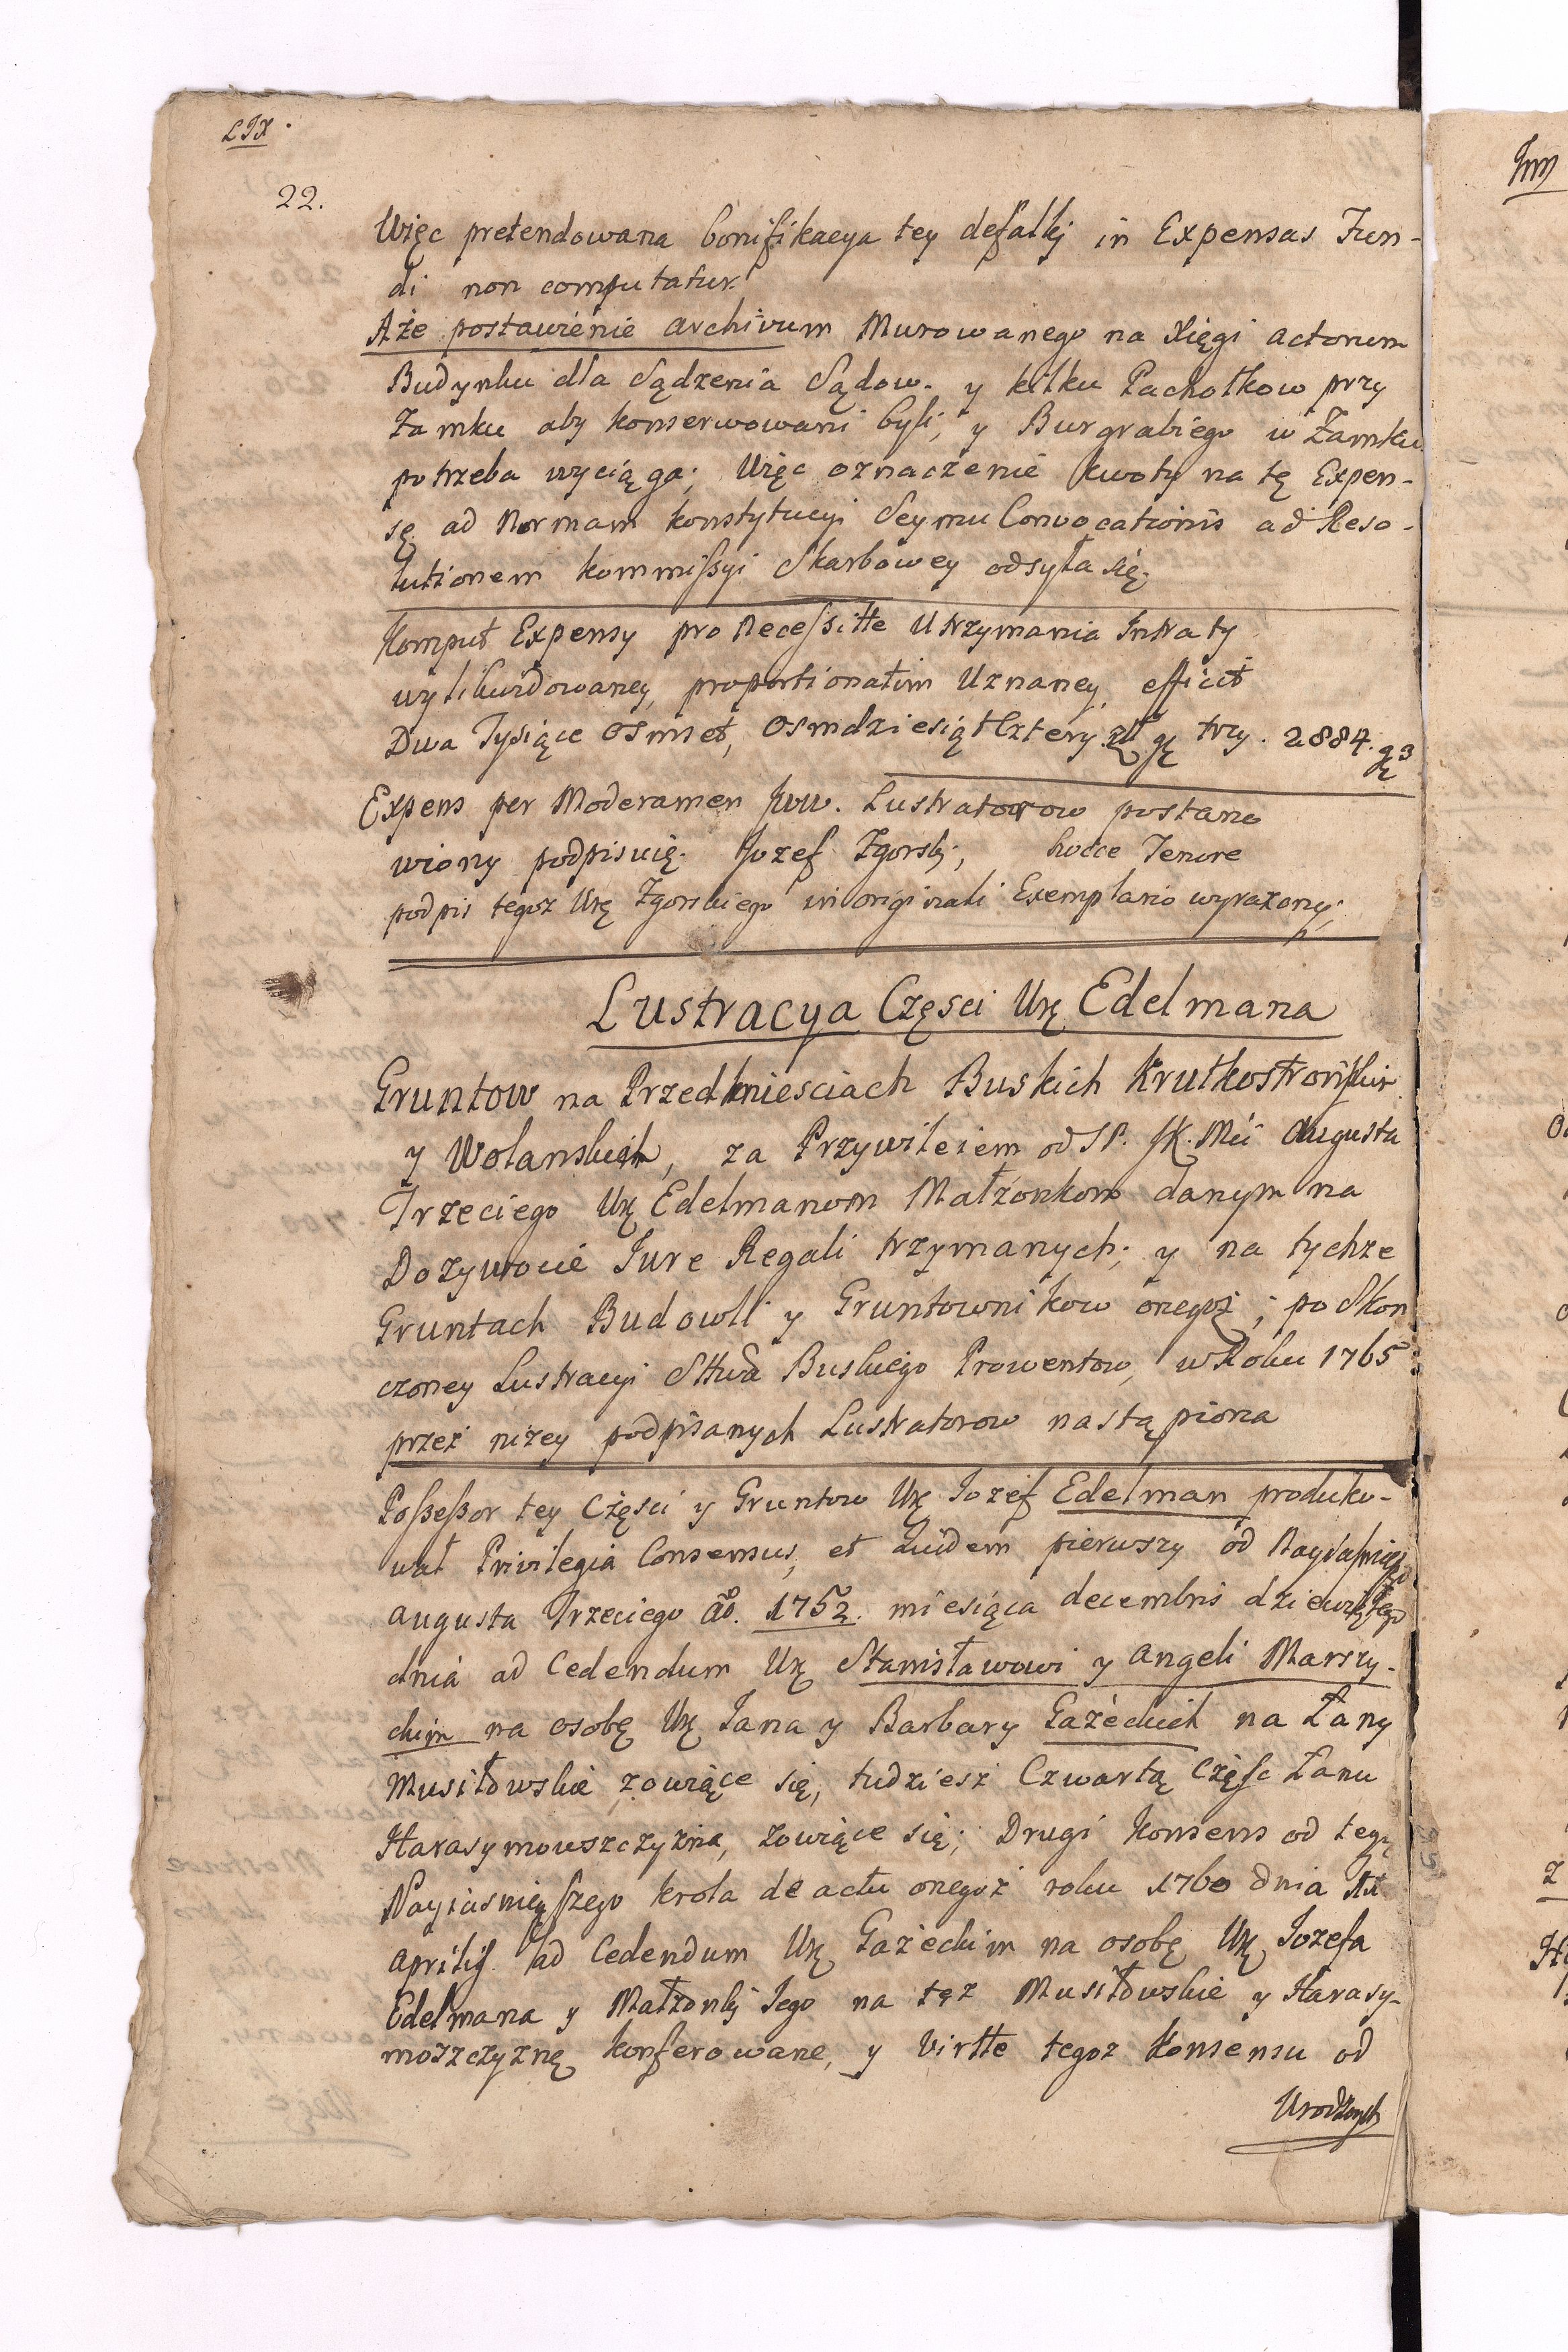 LIX.
22.
Więc pretendowana bonifikacya tey defalki in Expensas Fun-
di non computatur.
Aże postawienie archivum Murowanego na Xięgi actorum
Budynku dla Sądzenia Sądow. y kilku Pachołkow przy
Zamku aby konserwowani byli, y Burgrabiego w Zamku
potrzeba wyciąga; Więc oznaczenie kwoty na tę Expen-
sę ad Normam konstytucyi Seymu Convocationis ad Reso-
lutionem kommißyi Skarbowey odsyła się.
Komput Expensy pro Necessitte Utrzymania Intraty
wylikwidowaney, proportionatim Uznaney, efficit
Dwa Tysiące Osmset, Osmdziesiąt Cztery zł gr trzy. 2884. gr 3
Expens per Moderamen Jww. Lustratorow postano
wiony podpisuię. Jozef Zgorski, hocce Tenore
podpis tegoz Urę Zgorskiego in originali Exemplario wyrazony;
Lustracya Częsci Urę Edelmana
Gruntow na Przedmiesciach Buskich Krutkostrońskim
y Wolanskich, za Przywileiem od SP. JK. Mci Augusta
Trzeciego Urę Edelmanom Małżonkom danym na
Dozywocie Jure Regali trzymanych; y na tychze
Gruntach Budowli y Gruntownikow onegoż; po Skon
czoney Lustracyi Sttwa Buskiego Prowentow, w Roku 1765
przez niżey podpisanych Lustratorow nastąpiona
Poßeßor tey Częsci y Gruntow Urę Iozef Edelman produko-
wał Privilegia Consensus, et quidem pierwszy od Nayiasniego
augusta Trzeciego ao. 1752. miesiąca decembris dziewiątego
dnia ad Cedendum Urę Stanisławowi y angeli Marszy-
ckim na osobę Urę Jana y Barbary Gażeckich na Łany
Musiłowskie zowiące się, tudziesz Czwartą Częsc Łanu
Harasymowszczyzna, zowiące się; Drugi Konsens od tegoż
Nayiasnieyszego krola de actu onegoż roku 1760 dnia
aprilis ad Cedendum Urę Gażeckim na osobę Urę Jozefa
Edelmana y Małzonki Jego na też Musiłowskie y Harasy-
moszczyznę konferowane, y virtte tegoz Konsensu od
Urodzonych